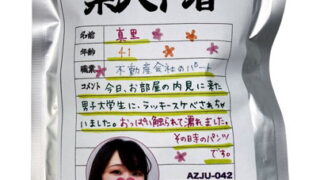 名前 真里
年齢 41
職業 不動産会社のパート
コメント 今日、お部屋の内見に来た
男子大学生に、ラッキースケベされちゃ
いました。おっぱい触られて濡れました。
その時のパンツ
です。
AZJU-042